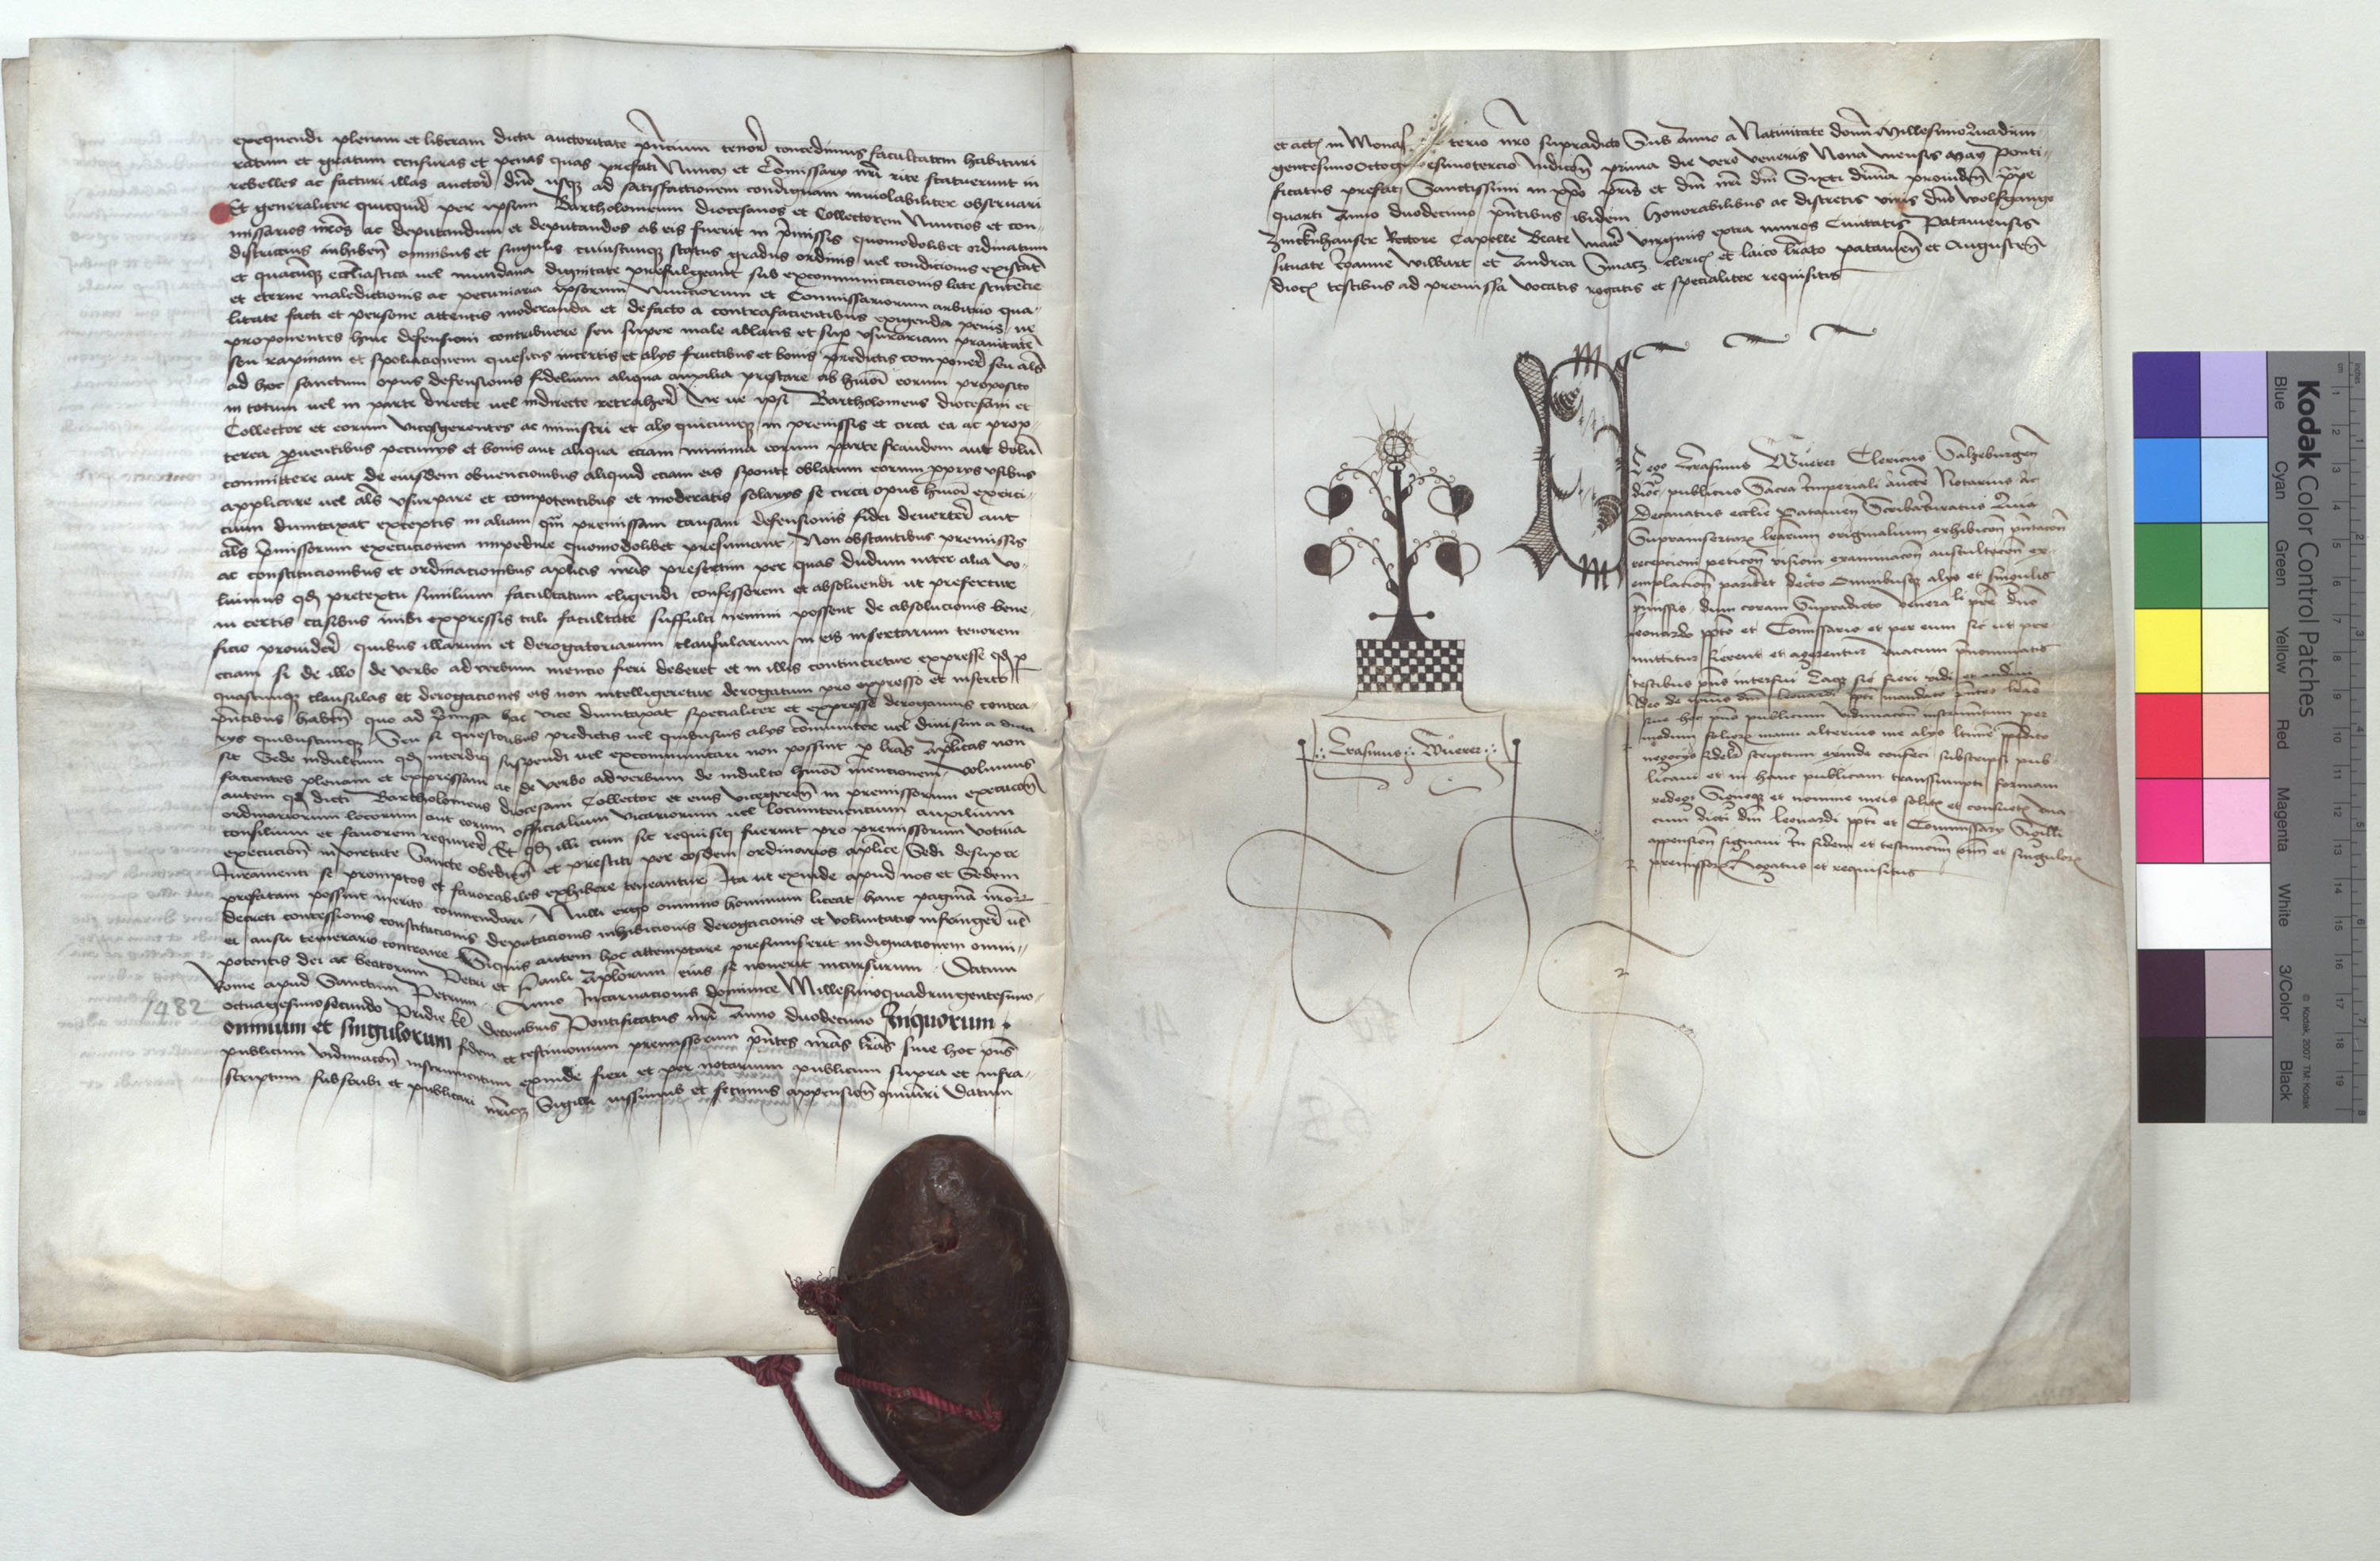 exequendi plenam et liberam dicta auctoritate pñcium tenor̃ concedimus facultatem habituri
ratum et gratum censuras et penas quas prefati Nuncij et Cõmissarij nr̃i rite statuerunt in
rebelles ac facturi illas auctor̃ dñi usq̢ ad satisfactionem condignam inuiolabiliter obseruari
Et generaliter quicquid per ipsum Bartholomeum diocesanos et Collectorem Nuncios et com-
missarios nr̃os ac deputandum et deputandos ab eis fuerit in p̃missis quomodolibet ordinatum
districtius inhibeñ omnibus et singulis cuiuscunq̢ status gradus ordinis uel condicionis existãt
et quacũq̢ eccl̃iastica uel mundana dignitate prefulgeant sub excommunicacionis late sentẽcie
et eterne maledictionis ac pecuniaria ipsorum Nunciorum et Commissariorum arbitrio qua-
litate facti et persone attentis moderanda et defacto a contrafacientibus exigenda penis ne
proponentes huic defensioni contribuere seu super male ablatis et sup̱ usurariam prauitatẽ
seu rapinam et spoliacionem quesitis incertis et alijs fructibus et bonis predictis componer̃ seu al̃s
ad hoc sanctum opus defensionis fidelium aliqua auxilia prestare ab hmõi eorum proposito
in totum uel in parte directe uel indirecte retraher̃ Ne ue ipsi Bartholomeus diocesani et
Collector et eorum vicesgerentes ac ministri et alij quicunq̢ in premissis et circa ea ac prop-
terea ꝓuenientibus pecunijs et bonis aut aliqua eciam minima eorum parte fraudem aut dolũ
committere aut de eiusdem obuencionibus aliquid eciam eis sponte oblatum eorum ꝓprijs usibus
applicare uel al̃s usurpare et competentibus et moderatis solarijs se circa opus hmõi exerci-
cium dumtaxat exceptis in aliam qm̃ premissam causam defensionis fidei deuerter̃ aut
al̃s p̃missorum execucionem impedire quomodolibet presumant Non obstantibus premissis
ac constitucionibus et ordinacionibus apl̃icis nr̃is presertim per quas dudum inter alia vo-
luimus qd̃ pretextu similium facultatum eligendi confessorem et absoluendi ut prefertur
in certis casibus inibi expressis tali facultate suffulti nemini possent de absolucionis bene-
ficio prouider̃ quibus illarum et derogatoriarum clausularum in eis insertarum tenorem
eciam si de illo de verbo ad verbum mencio fieri deberet et in illis contineretur expresse qd̃ p̱
quascunq̢ clausulas et derogaciones eis non intelligeretur derogatum pro expresso et inserto
pñtibus habeñ quo ad p̃missa hac vice dumtaxat specialiter et expresse derogamus contra-
rijs quibuscunq̢ Seu si questoribus predictis uel quibusuis alijs cõmuniter uel diuisim a dicta
sit Sede indultum qd̃ interdici suspendi uel excommunicari non possint p̱ lr̃as apl̃icas non
facientes plenam et expressam ac de verbo ad verbum de indulto hmõi mencionem volumus
autem qd̃ dicti Bartholomeus diocesani Collector et eius vicegereñ in premissorum execucõñ
ordinariorum locorum aut eorum officialium vicariorum uel locumtenencium auxilium
consilium et fauorem requirer̃ Et qd̃ illi cum sic requisiti fuerint pro premissorum votiua
execucioñ in virtute Sancte obedieñ et prestiti per eosdem ordinarios apl̃ice Sedi desuper
Iuramenti se promptos et fauorabiles exhibere teneantur Ita ut exinde apud nos et Sedem
prefatam possint merito commendari Nulli ergo omnino hominum liceat hanc paginã nr̃orꝫ
decreti concessionis constitucionis deputacionis inhibicionis derogacionis et voluntatis infringer̃ ul̃
ei ausu temerario contraire Siquis autem hoc attemptare presumserit indignationem omni-
potentis dei ac beatorum Petri et Pauli apl̃orum eius se nouerit incursurum Datum
Rome apud Sanctum Petrum Anno Incarnacionis dominice Millesimoquadringentesimo-
1482
octuagesimosecundo Pridie kl̃ decembris Pontificatus nr̃i Anno duodecimo Inquorum
omnium et singulorum fidem et testimonium premissorum pñtes nr̃as lr̃as siue hoc pñs
publicum vidimacõñ instrumentum exinde fieri et per notarium publicum supra et infra-
scriptum subscribi et publicari nr̃iq̢ Sigilli iussimus et fecimus appensioñ cõmuniri Datum
et actꝫ in Monasterio nr̃o supradicto Sub Anno a Natiuitate domini Millesimoquadrin-
gentesimooctogesimotercio Indicõñ prima die vero veneris Nona mensis Maij Ponti-
ficatus prefati Sanctissimi in xp̃o pr̃is et dñi nr̃i dñi Sixti diuina prouideñ pp̃e
quarti Anno duodecimo pñtibus ibidem honorabilibus ac discretis viris dño wolfgango
Zinckñhauser Rectore Capelle Beate marie virginis extra muros Ciuitatis Patauiensis
situate Ioanne wilbart et Andrea Smacz clericꝫ et laico lr̃ato patauieñ et Augusteñ
diocꝫ testibus ad premissa vocatis rogatis et specialiter requisitis
Et ego Erasmus Würer Clericus Salczburgeñ
dioc̃ publicus Sacra Imperiali auctẽ Notarius ac
Decanatus eccl̃ie Patauieñ Scriba Iuratus Quia
Suprainsertorꝫ lr̃arum originalium exhibicõñ pñtacõñ
recepcioni peticõñ visioni examinacõñ auscultacõñ ex-
emplacioñ pariter decreto Omnibusq̢ alijs et singulis
p̃missis dum coram Supradicto venerabili pr̃e dño
Leonardo pp̃to et Comissario et per eum sic ut pre-
mittitur fierent et agerentur vnacum p̃nominatis
testibus pñs interfui Eaq̢ sic fieri vidi et audiui
Ideo de ipsius dñi leonardi pp̃ti mandato pñtes lr̃as
siue hoc pñs publicum vidimacõñ instrumentum per
modum foliorꝫ manu alterius me alijs l̃time p̃pedito
negocijs fideler̃ scriptum exinde confeci subscripsi pub-
licaui et in hanc publicam transsumpti formam
redegi Signoq̢ et nomine meis solitꝫ et consuetꝫ vna-
cum dicti dñi leonardi pp̃ti et Commissarij Sigilli
appensioñ signaui In fidem et testimoniũ om̃ et singulorꝫ
premissorꝫ Rogatus et requisitus
Erasmus Würer
Kodak Color Control Patches
Blue Cyan Green Yellow Red Magenta White 3/Color Black
© Kodak, 2007 TM: Kodak
inches 1 2 3 4 5 6 7 8
cm 1 2 3 4 5 6 7 8 9 10 11 12 13 14 15 16 17 18 19